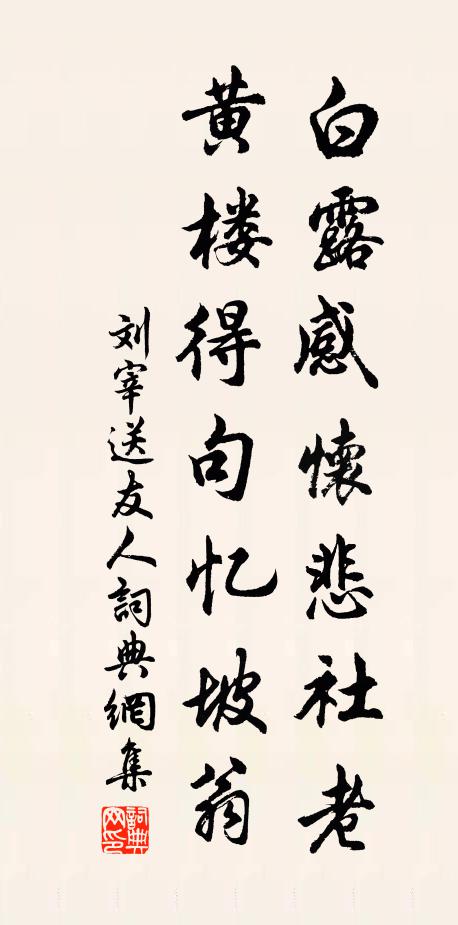 白露感懷悲社老
黄楼得句忆坡翁
刘宰送友人詞典網集
詞典网印